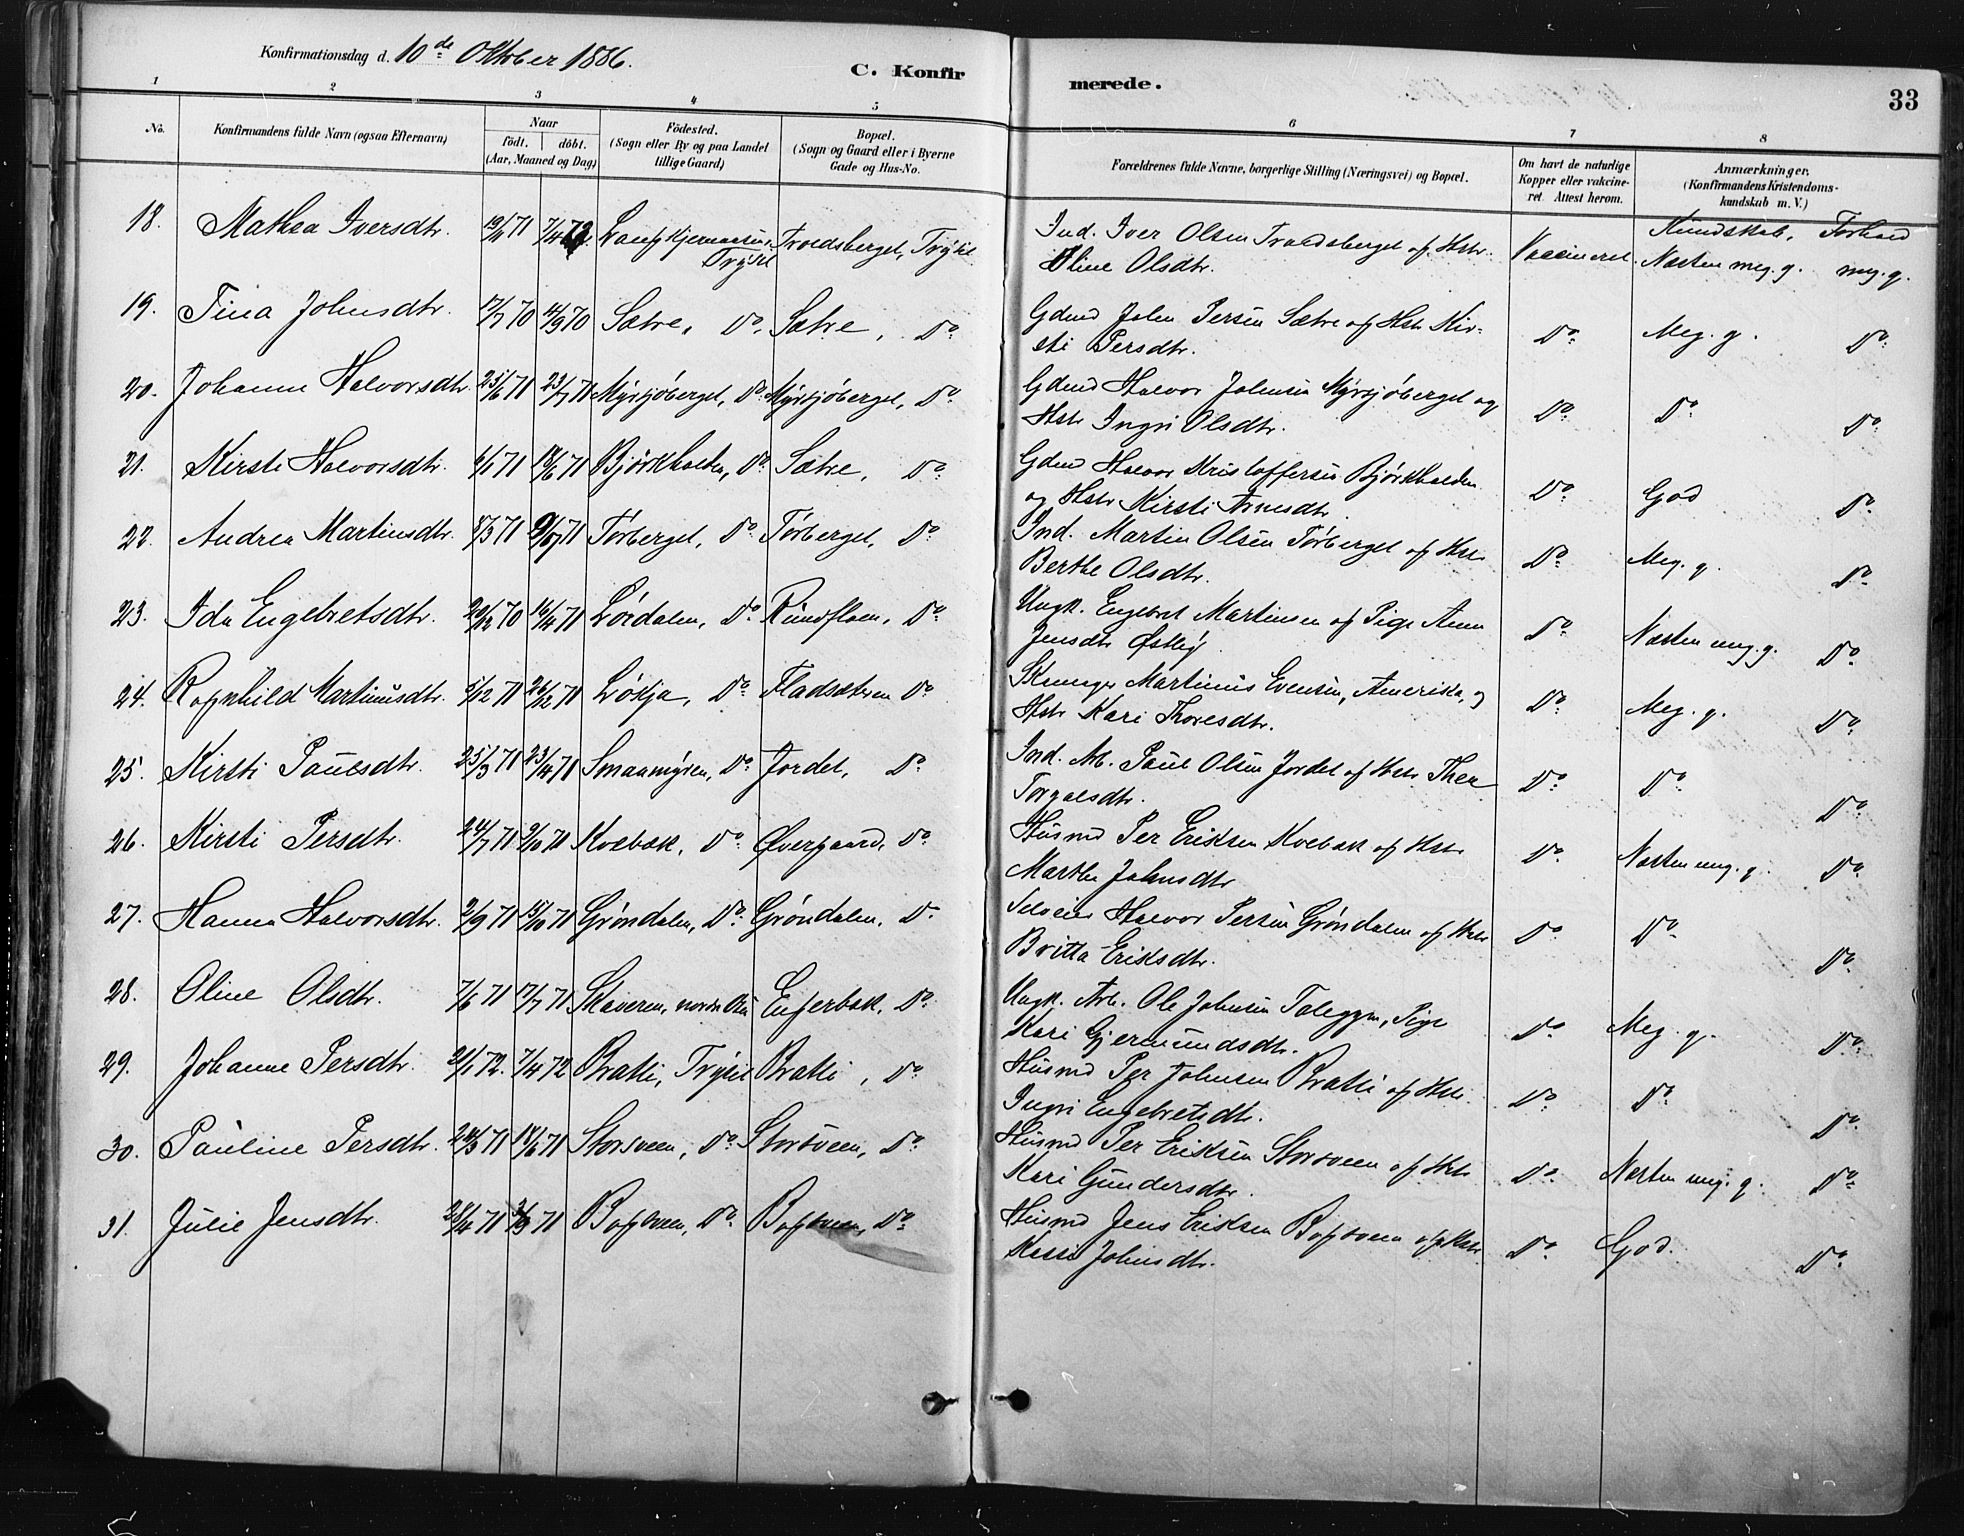 Konfirmationsdag d. 10de Oktober 1886.
C. Konfirmerede.
33
1 2 3 4 5 6 7 8
No.
Konfirmandens fulde Navn (ogsaa Efternavn)
Naar
födt. döbt.
(Aar, Maaned og Dag)
Födested.
(Sogn eller By og paa Landet
tillige Gaard)
Bopæl.
(Sogn og Gaard eller i Byerne
Gade og Hus-No.
Forældrenes fulde Navne, borgerlige Stilling (Næringsvei) og Bopæl.
Om havt de naturlige
Kopper eller vakcine-
ret. Attest herom.
Anmærkninger.
(Konfirmandens Kristendoms-
kundskab m. V.)
Kundskab. Forhold
18. Mathea Iversdtr. 19/11 71 7/4 72 Trysil Troedsberget, Trysil Ind. Iver Olsen Troedsberget og Hstr. Vaccineret Næsten meg. g. meg. g.
Oline Olsdtr.
19. Tina Johnsdtr. 17/7 70 11/9 70 Sætre, Do. Sætre, Do. Gdmd John Persen Sætre og Hstr Kir- Do. Meg. g. Do.
sti Persdtr.
20. Johanne Halvorsdtr. 25/6 71 23/7 71 Myrsjöberget, Do. Myrsjöberget, Do. Gdmd Halvor Johnsen Myrsjöberget og Do. Do. Do.
Hstr Ingri Olsdtr.
21. Kirsti Halvorsdtr. 4/1 71 18/6 71 Björkholden, Do. Sætre, Do. Gdmd Halvor Kristoffersen Björkholden Do. God Do.
og Hstr Kirsti Arnesdtr.
22. Andrea Martinsdtr. 8/3 71 9/7 71 Törberget, Do. Törberget, Do. Ind. Martin Olsen Törberget og Hstr Do. Meg. g. Do.
Berthe Olsdtr.
23. Ida Engebretsdtr. 20/12 70 16/4 71 Lördalen, Do. Rundfloen, Do. Ungk. Engebret Martinsen og Pige Anne Do. Næsten meg. g. Do.
Jensdtr Østby
24. Ragnhild Martinusdtr. 5/12 71 26/12 71 Lökja, Do. Fladsæteren Do. Martinus Evensen, Amerika, og Do. Meg. g. Do.
Hstr Kari Thoresdtr.
25. Kirsti Paulsdtr. 25/3 71 23/4 71 Smaamyren, Do. Jordet, Do. Ind. Arb. Paul Olsen Jordet og Hstr Thea Do. Do. Do.
26. Kirsti Persdtr. 24/7 71 9/10 71 Kvebæk, Do. Øvergaard, Do. Husmd Per Eriksen Kvebæk og Hstr Do. Næsten meg. g. Do.
Marthe Johnsdtr
27. Hanna Halvorsdtr. 2/9 71 15/10 71 Gröndalen, Do. Gröndalen, Do. Selveier Halvor Persen Gröndalen og Hstr Do. Do. Do.
Britta Eriksdtr.
28. Oline Olsdtr. 7/6 71 17/7 71 Enjerbæk, Do. Ungk. Arb. Ole Johnsen Pige Do. Meg. g. Do.
Kari Gjermundsdtr.
29. Johanne Persdtr. 21/1 72. 7/4 72 Bratli, Trysil Bratli, Do. Husmd Per Johnsen Bratli og Hstr. Do. Do. Do.
Ingri Engebretsdtr.
30. Pauline Persdtr. 20/3 71 18/6 71 Storsveen, Do. Storsveen, Do. Husmd Per Eriksen Storsveen og Hstr Do. Næsten meg. g. Do.
Kari Gundersdtr.
31. Julie Jensdtr. 28/4 71 3/9 71 Do. Do. Husmd Jens Eriksen og Hstr Do. God. Do.
Johnsdtr.